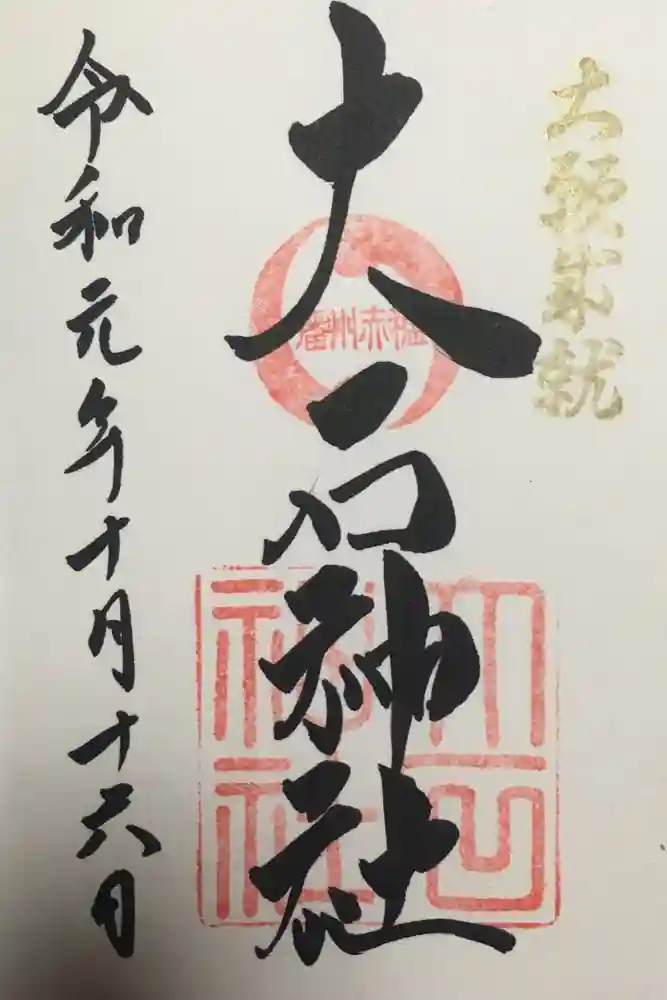 大願成就
大石神社
播州赤穂
大石神社
令和元年十月十六日